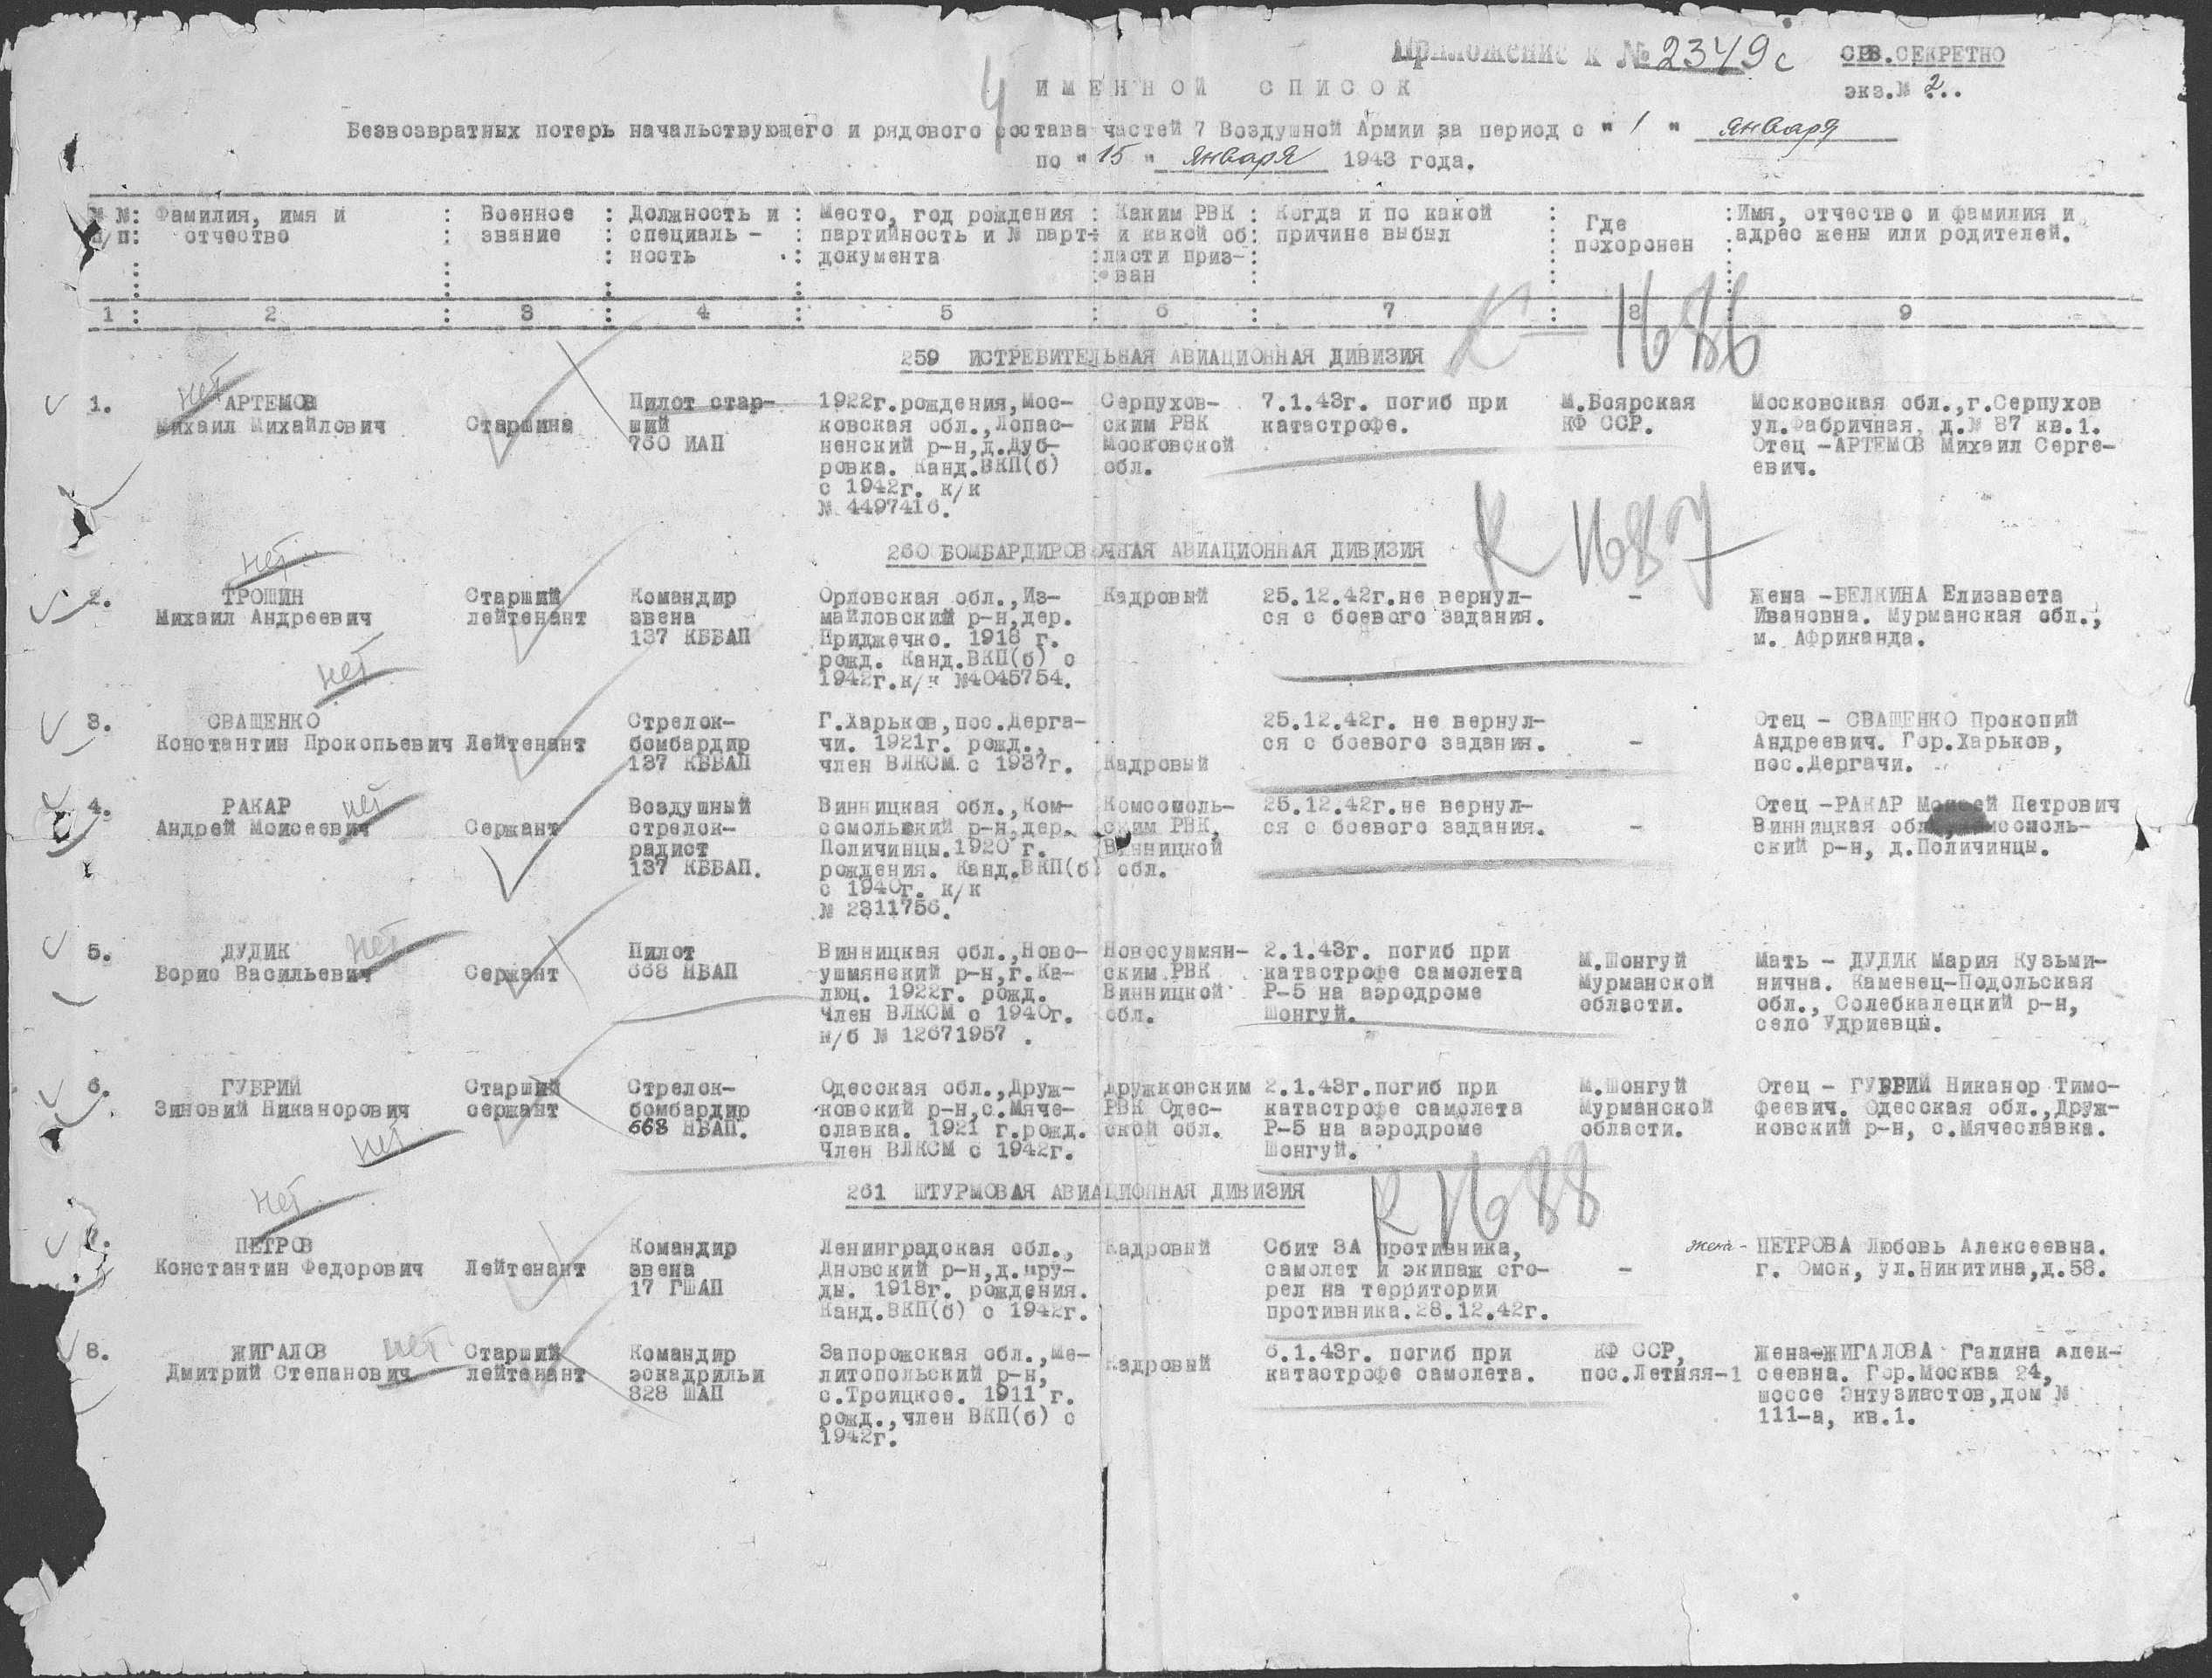 Приложение к № 2349с
СОВ.СЕКРЕТНО
экз.№ 2..
4
ИМЕННОЙ СПИСОК
Безвозвратных потерь начальствующего и рядового состава частей 7 Воздушной Армии за период с " 1 " января
по " 15 " января 1943 года.
№ №: Фамилия, имя и : Военное : Должность и : Место, год рождения : Каким РВК : Когда и по какой : Где :Имя, отчество и фамилия и
п/п: отчество : звание : специаль - : партийность и № парт-: и какой об: причине выбыл : похоронен :адрес жены или родителей.
ность : документа :ласти приз-:
ван
1 : 2 : 3 : 4 : 5 : 6 : 7 : 8 : 9
К 1686
259 ИСТРЕБИТЕЛЬНАЯ АВИАЦИОННАЯ ДИВИЗИЯ
нет
1. АРТЕМОВ Пилот стар- 1922г.рождения,Мос- Серпухов- 7.1.43г. погиб при М.Боярская Московская обл.,г.Серпухов
Михаил Михайлович Старшина ший ковская обл.,Лопас- ским РВК катастрофе. КФ ССР. ул.Фабричная, д.№ 87 кв.1.
760 ИАП ненский р-н,д.Дуб- Московской Отец -АРТЕМОВ Михаил Серге-
ровка. Канд.ВКП(б) обл. евич.
с 1942г. к/к
№ 4497416.
К 1687
260 БОМБАРДИРОВОЧНАЯ АВИАЦИОННАЯ ДИВИЗИЯ
нет
2. ТРОШИН Старший Командир Орловская обл.,Из- Кадровый 25.12.42г.не вернул- - Жена -БЕЛКИНА Елизавета
Михаил Андреевич лейтенант звена майловский р-н,дер. ся с боевого задания. Ивановна. Мурманская обл.,
137 КББАП Приджечко. 1918 г. м. Африканда.
рожд. Канд.ВКП(б) с
1942г.к/к №4045754.
нет
3. СВАЩЕНКО Стрелок- Г.Харьков,пос.Дерга- 25.12.42г. не вернул- Отец - СВАЩЕНКО Прокопий
Константин Прокопьевич Лейтенант бомбардир чи. 1921г. рожд., ся с боевого задания. - Андреевич. Гор.Харьков,
137 КББАП член ВЛКСМ с 1937г. Кадровый пос.Дергачи.
4. РАКАР нет Воздушный Винницкая обл.,Ком- Комсомоль- 25.12.42г.не вернул- Отец -РАКАР Моисей Петрович
Андрей Моисеевич Сержант стрелок- сомольский р-н,дер. ским РВК, ся с боевого задания. - Винницкая
радист Поличинцы.1920 г. Винницкой ский р-н, д.Поличинцы.
137 КББАП. рождения. Канд.ВКП(б) обл.
с 1940г. к/к
№ 2311756.
5. ДУДИК нет Пилот Винницкая обл.,Ново- Новосушмян- 2.1.43г. погиб при М.Шонгуй Мать - ДУДИК Мария Кузьми-
Борис Васильевич Сержант 668 НБАП ушмянский р-н,г.Ка- ским РВК катастрофе самолета Мурманской нична. Каменец-Подольская
люц. 1922г. рожд. Винницкой Р-5 на аэродроме области. обл., Солебкалецкий р-н,
Член ВЛКСМ с 1940г. обл. Шонгуй. село Удриевцы.
н/б № 12671957 .
6. ГУБРИЙ Старший Стрелок- Одесская обл.,Друж- Дружковским 2.1.43г.погиб при М.Шонгуй Отец - ГУБРИЙ Никанор Тимо-
Зиновий Никанорович сержант бомбардир ковский р-н,с.Мяче- РВК Одес- катастрофе самолета Мурманской феевич. Одесская обл.,Друж-
668 НБАП. славка. 1921 г.рожд. ской обл. Р-5 на аэродроме области. ковский р-н, с.Мячеславка.
нет Член ВЛКСМ с 1942г. Шонгуй.
К 1688
261 ШТУРМОВАЯ АВИАЦИОННАЯ ДИВИЗИЯ
нет
7. ПЕТРОВ Командир Ленинградская обл., Кадровый Сбит ЗА противника, жена - ПЕТРОВА Любовь Алексеевна.
Константин Федорович Лейтенант звена Дновский р-н,д.Пру- самолет и экипаж сго- - г. Омск, ул.Никитина,д.58.
17 ГШАП ды. 1918г. рождения. рел на территории
Канд.ВКП(б) с 1942г. противника.28.12.42г.
8. ЖИГАЛОВ нет Старший Командир Запорожская обл.,Ме- Кадровый 6.1.43г. погиб при КФ ССР, Жена-ЖИГАЛОВА Галина Алек-
Дмитрий Степанович лейтенант эскадрильи литопольский р-н, катастрофе самолета. пос.Летняя-1 сеевна. Гор.Москва 24,
828 ШАП с.Троицкое. 1911 г. шоссе Энтузиастов,дом №
рожд.,член ВКП(б) с 111-а, кв.1.
1942г.